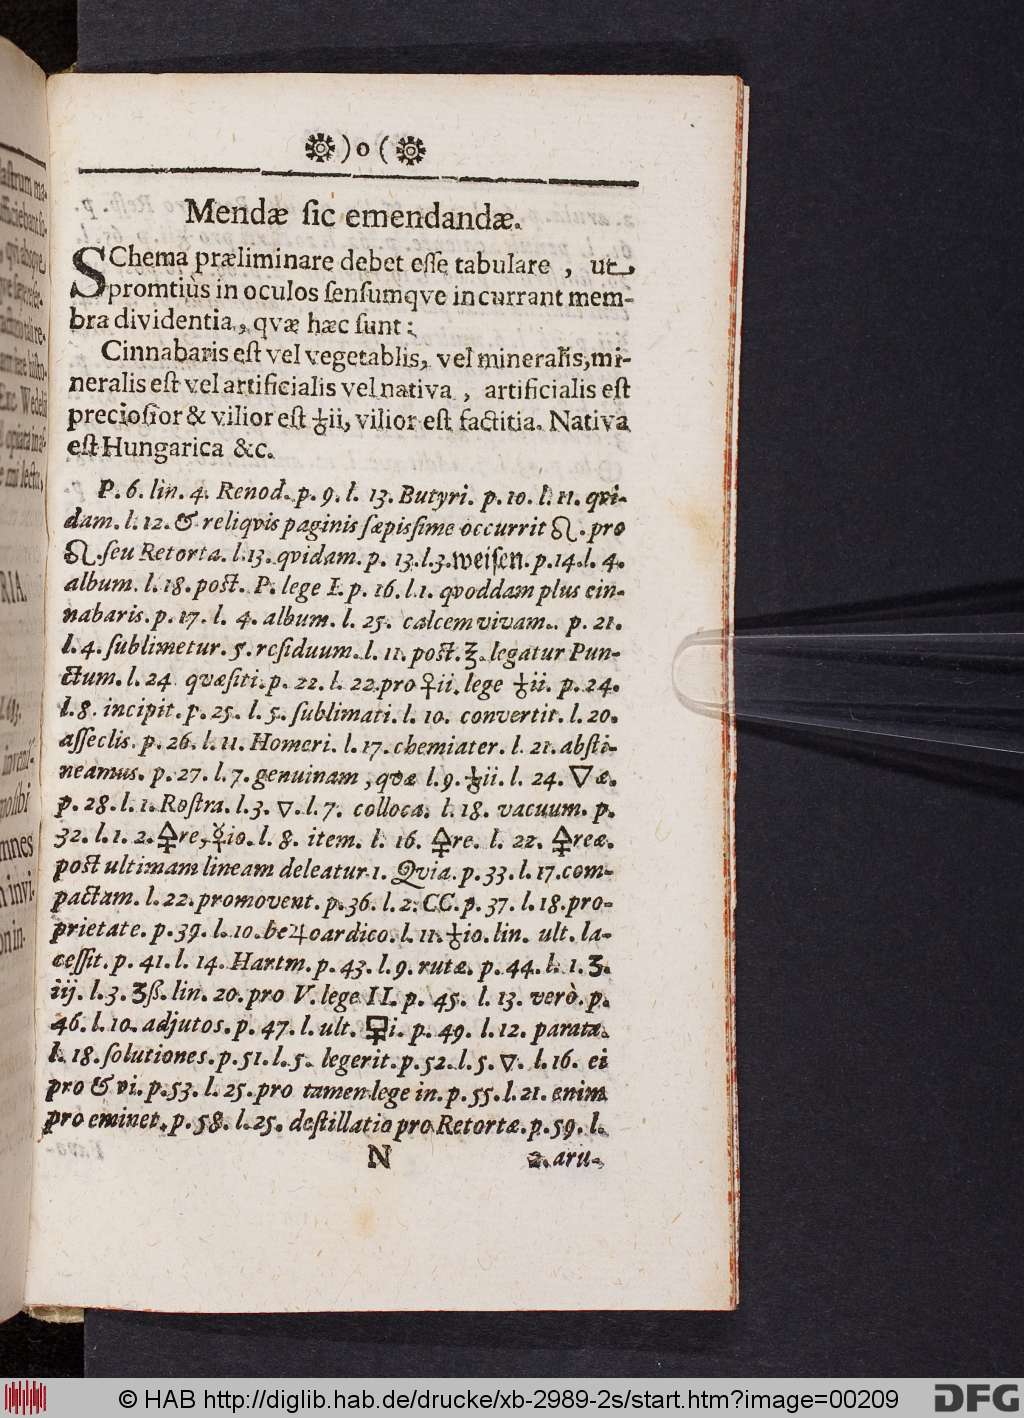 )o(
Mendæ sic emendandæ.
SChema præliminare debet esse tabulare , ut
promtiùs in oculos sensumqve incurrant mem-
bra dividentia, qvæ hæc sunt:
Cinnabaris est vel vegetablis, vel mineralis, mi-
neralis est vel artificialis vel nativa , artificialis est
preciosior & vilior est ♄ii, vilior est factitia. Nativa
est Hungarica &c.
P. 6. lin. 4. Renod. p. 9. l. 13. Butyri. p. 10. l. 11. qvi-
dam. l. 12. & reliqvis paginis sæpissime occurrit ♌. pro
seu Retorta. l. 13. qvidam. p. 13. l. 3. weisen. p. 14. l. 4.
album. l. 18. post. P. lege I. p. 16. l. 1. qvoddam plus cin-
nabaris. p. 17. l. 4. album. l. 25. calcem vivam. p. 21.
l. 4. sublimetur. 5. residuum. l. 11. post. ʒ. legatur Pun-
ctum. l. 24 qvæsiti. p. 22. l. 22. pro ♀ii. lege ♄ii. p. 24.
l. 8. incipit. p. 25. l. 5. sublimati. l. 10. convertit. l. 20.
asseclis. p. 26. l. 11. Homeri. l. 17. chemiater. l. 21. absti-
neamus. p. 27. l. 7. genuinam, qvæ l. 9. ♄ii. l. 24. ▽æ.
p. 28. l. 1. Rostra. l. 3. ▽. l. 7. colloca. l. 18. vacuum. p.
32. l. 1. 2. 🜍re, ☿io. l. 8. item. l. 16. 🜍re. l. 22. 🜍reæ.
post ultimam lineam deleatur 1. Qvia. p. 33. l. 17. com-
pactam. l. 22. promovent. p. 36. l. 2. CC. p. 37. l. 18. pro-
prietate. p. 39. l. 10. be♃oardico. l. 11. ♄io. lin. ult. la-
cessit. p. 41. l. 14. Hartm. p. 43. l. 9. rutæ. p. 44. l. 1. ʒ.
iij. l. 3. ʒß. lin. 20. pro V. lege II. p. 45. l. 13. verò. p.
46. l. 10. adjutos. p. 47. l. ult. i. p. 49. l. 12. paratæ.
l. 18. solutiones. p. 51. l. 5. legerit. p. 52. l. 5. ▽. l. 16. ei
pro & vi. p. 53. l. 25. pro tamen lege in. p. 55. l. 21. enim
pro eminet. p. 58. l. 25. destillatio pro Retortæ. p. 59. l.
N 2. aru-
© HAB http://diglib.hab.de/drucke/xb-2989-2s/start.htm?image=00209
DFG